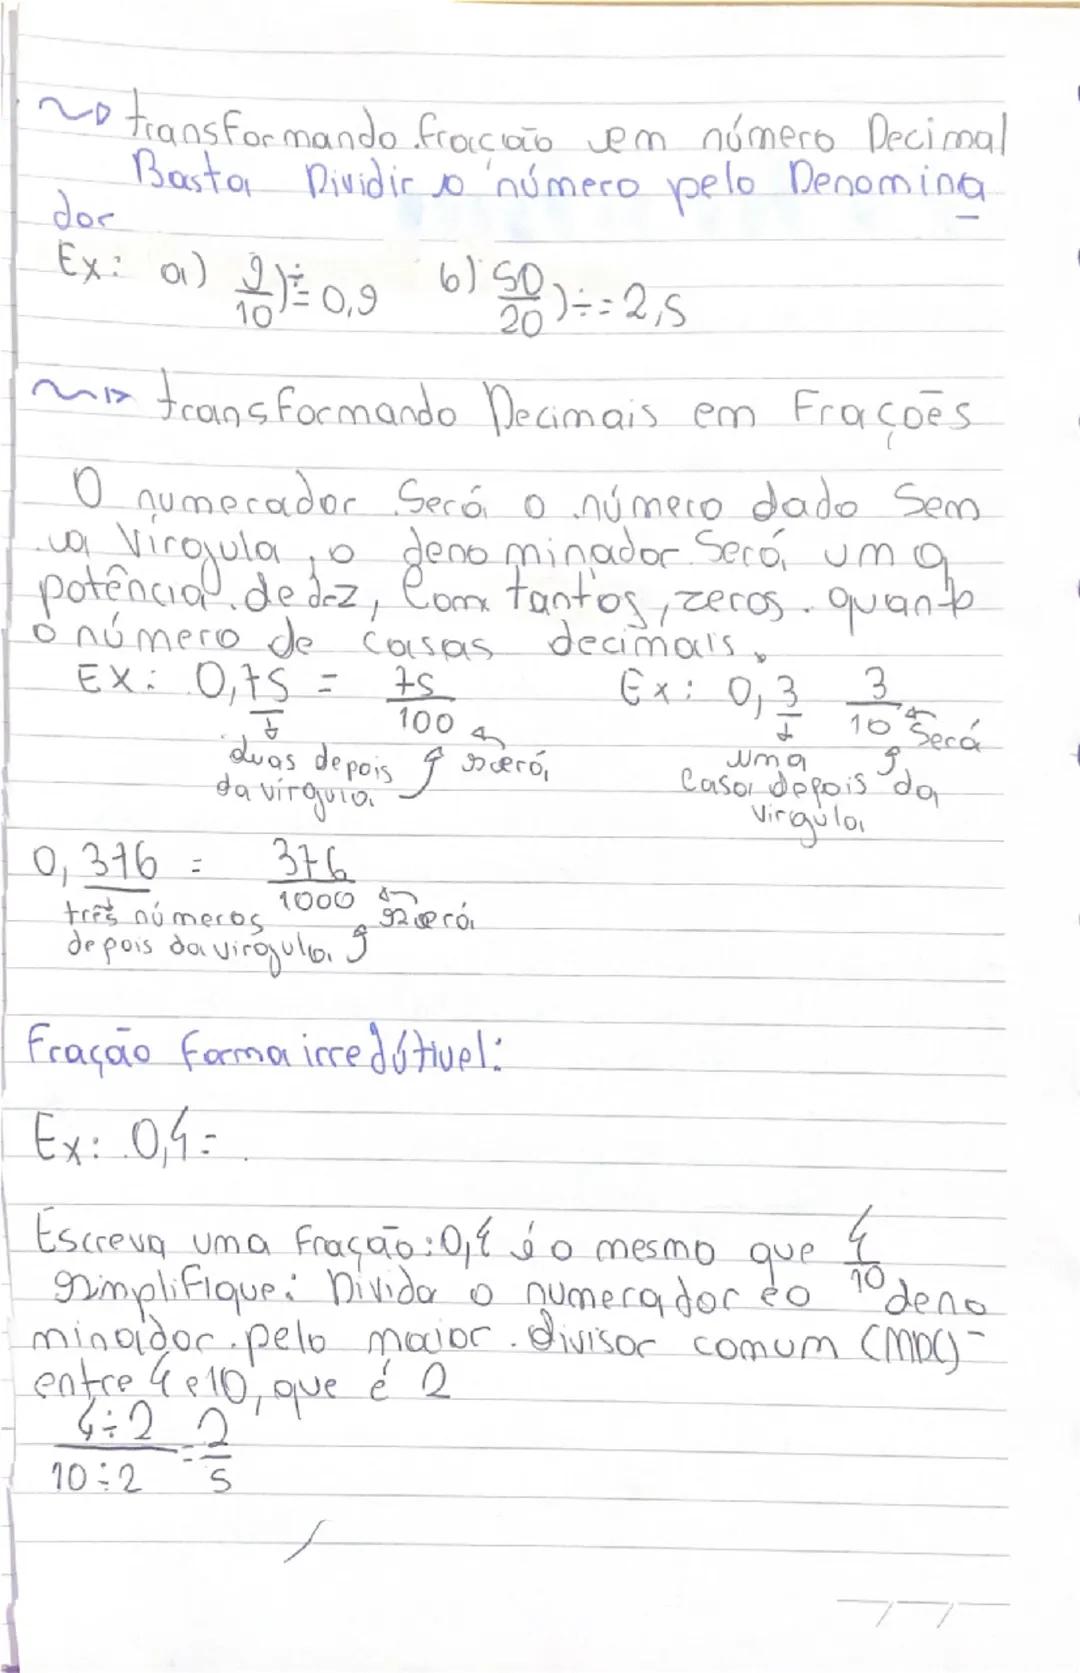 transformando fração em número Decimal
Basta Dividir o número pelo Denomina
dor
Ex: a) 9/10 )÷ = 0,9 b) 50/20 )÷ = 2,5
transformando Decimais em Frações
O numerador Será o número dado Sem
a Vírgula, o denominador Será uma
potência de dez, Com tantos zeros quanto
o número de casas decimais.
EX: 0,75 = 75/100 Ex: 0,3 3/10 Será
duas depois da vírgula será
uma Casa depois da Virgula
0,376 = 376/1000
três números será
depois da virgula
Fração forma irredútivel:
Ex: 0,4=
Escreva uma fração: 0,4 é o mesmo que 4/10
simplifique: Divida o numerador e o deno
minador pelo maior divisor comum (MDC)-
entre 4 e 10, que é 2
4÷2/10÷2 = 2/5